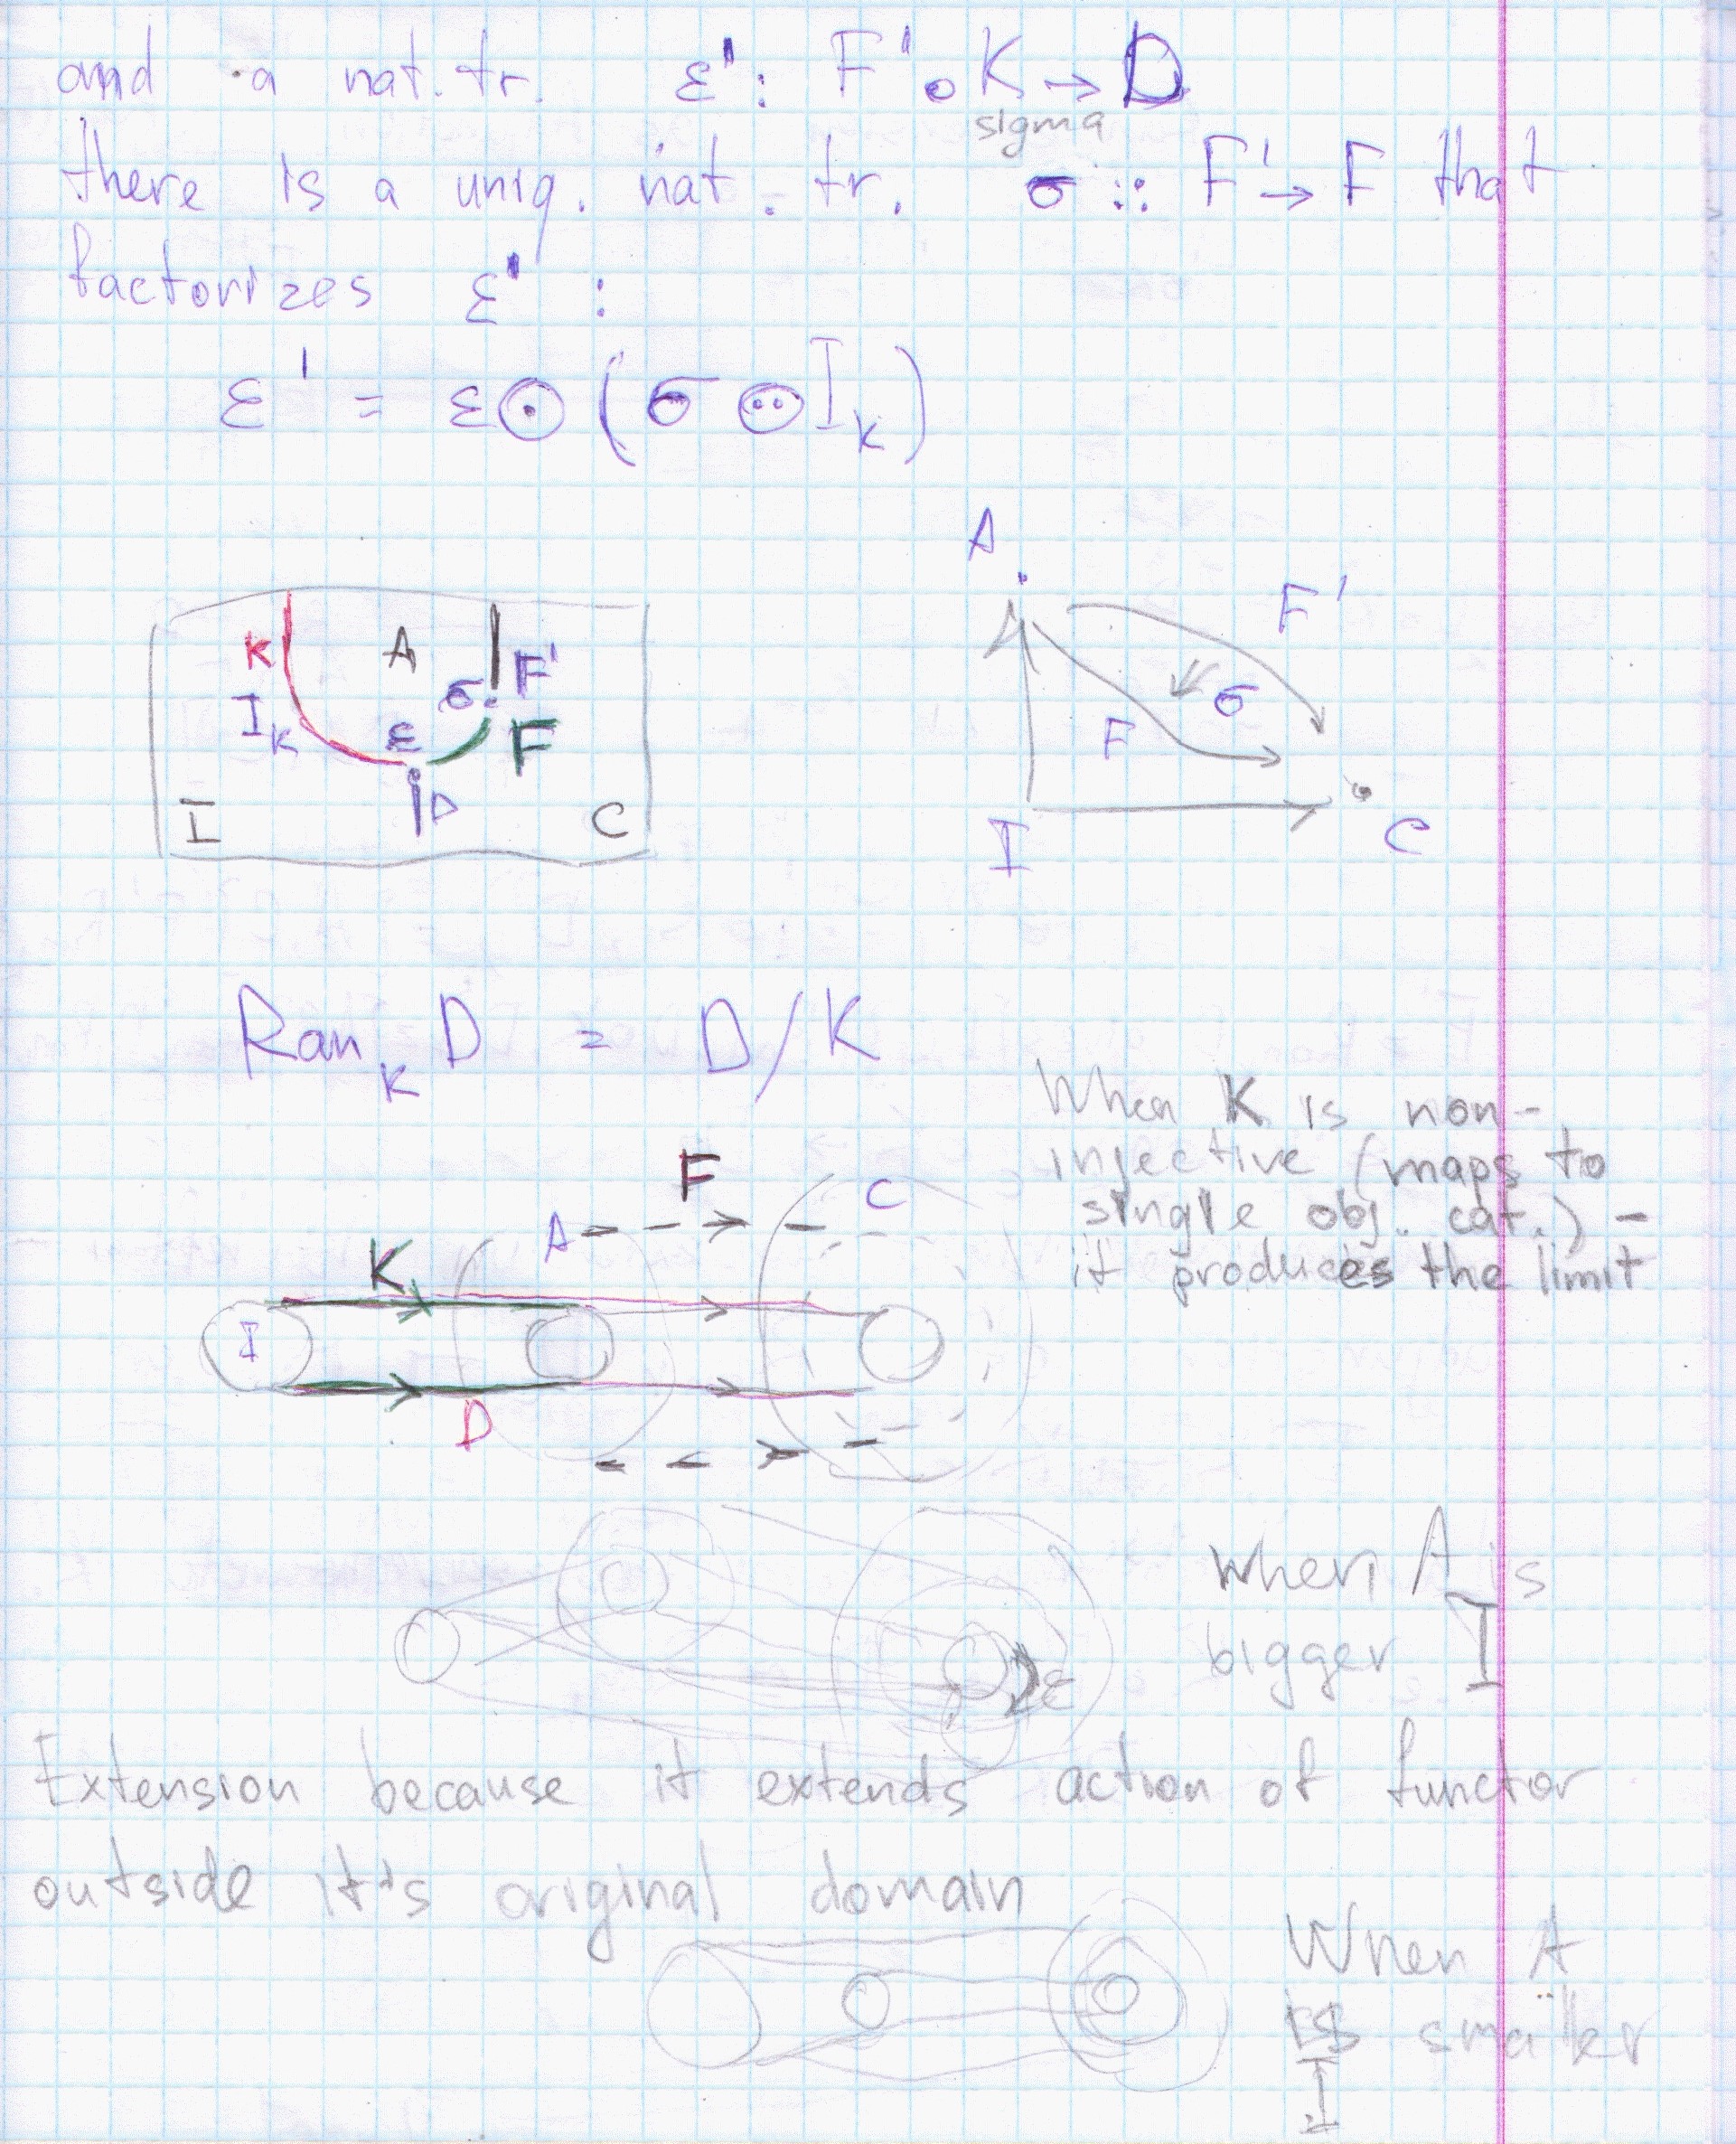 and a nat. tr. ε': F'∘K → D
sigma
there is a uniq. nat. tr. σ :: F' → F that
factorizes ε' :
ε' = ε ⊙ (σ ⊙ I_K)
K A σ F'
I_K ε F
D
I C
A
F'
σ
F
I C
Ran_K D = D/K
When K is non-
injective (maps to
single obj. cat.) -
it produces the limit
F
A C
K
I
D
When A is
bigger I
ε
Extension because it extends action of functor
outside it's original domain
When A
is smaller
I